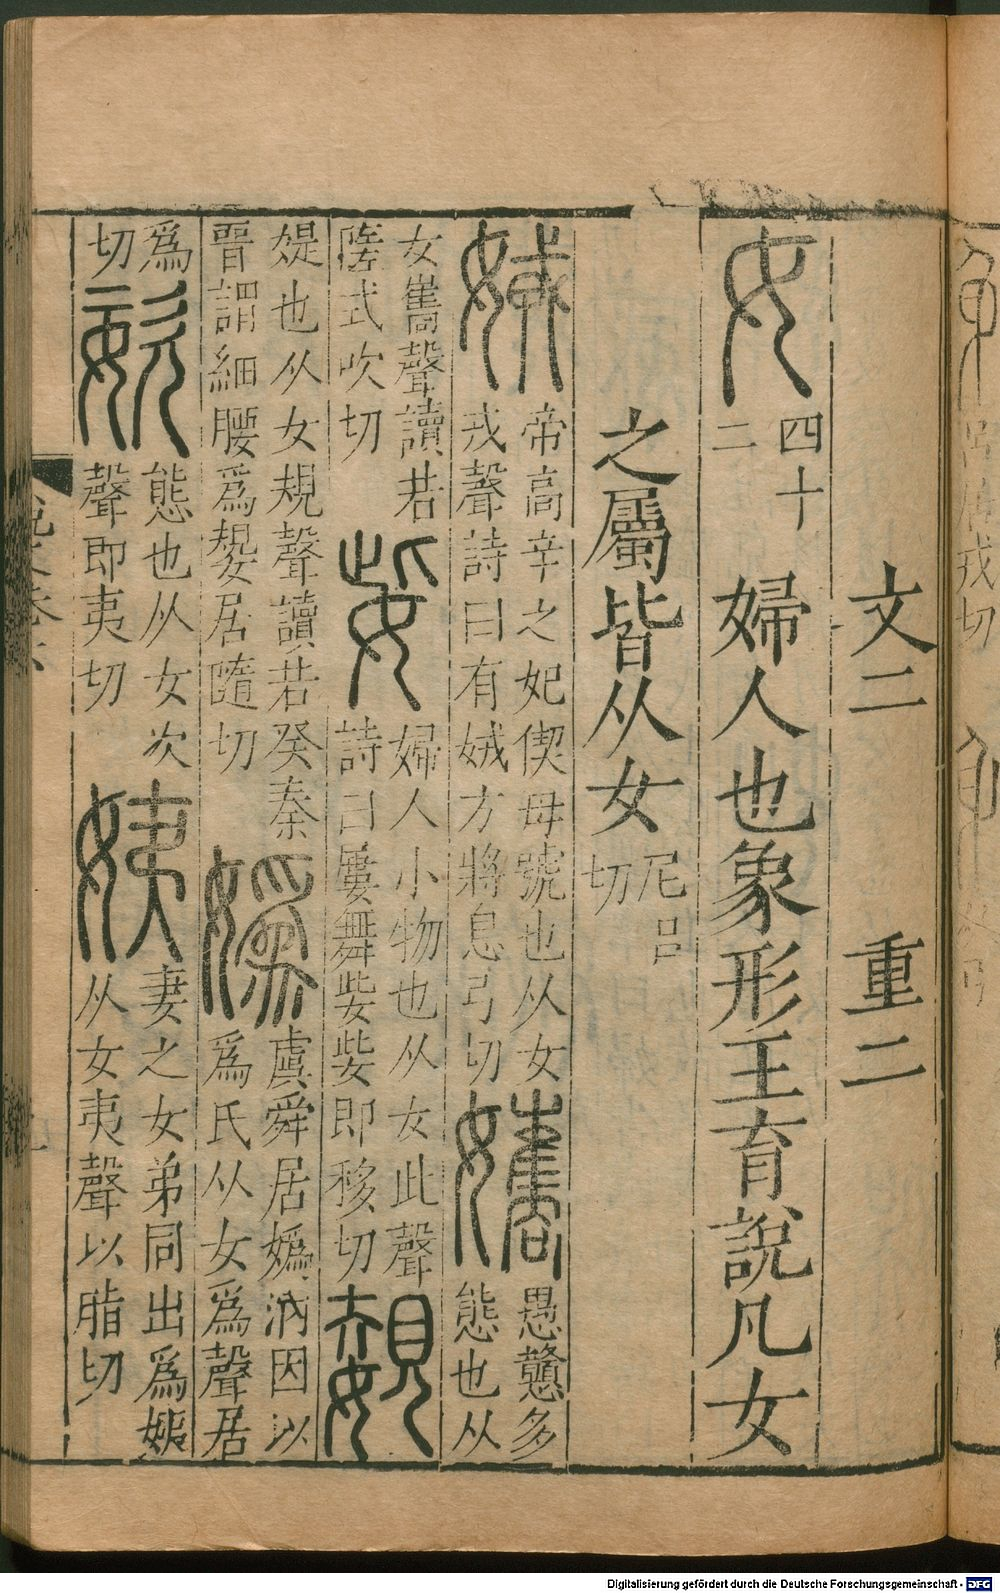 文二 重二
女 四十二 婦人也象形王育說凡女
之屬皆从女 尼呂切
娀 帝高辛之妃偰母號也从女
戎聲詩曰有娀方將息弓切 㜇 愚戆多態也从
女巂聲讀若陸式吹切 姕 婦人小物也从女此聲
詩曰屢舞姕姕即移切 嫢
媞也从女規聲讀若癸秦
晉謂細腰爲嫢居隨切 嬀 虞舜居嬀汭因以
爲氏从女爲聲居爲切 㛳
態也从女次
聲即夷切 姨 妻之女弟同出爲姨
从女夷聲以脂切
Digitalisierung gefördert durch die Deutsche Forschungsgemeinschaft - DFG